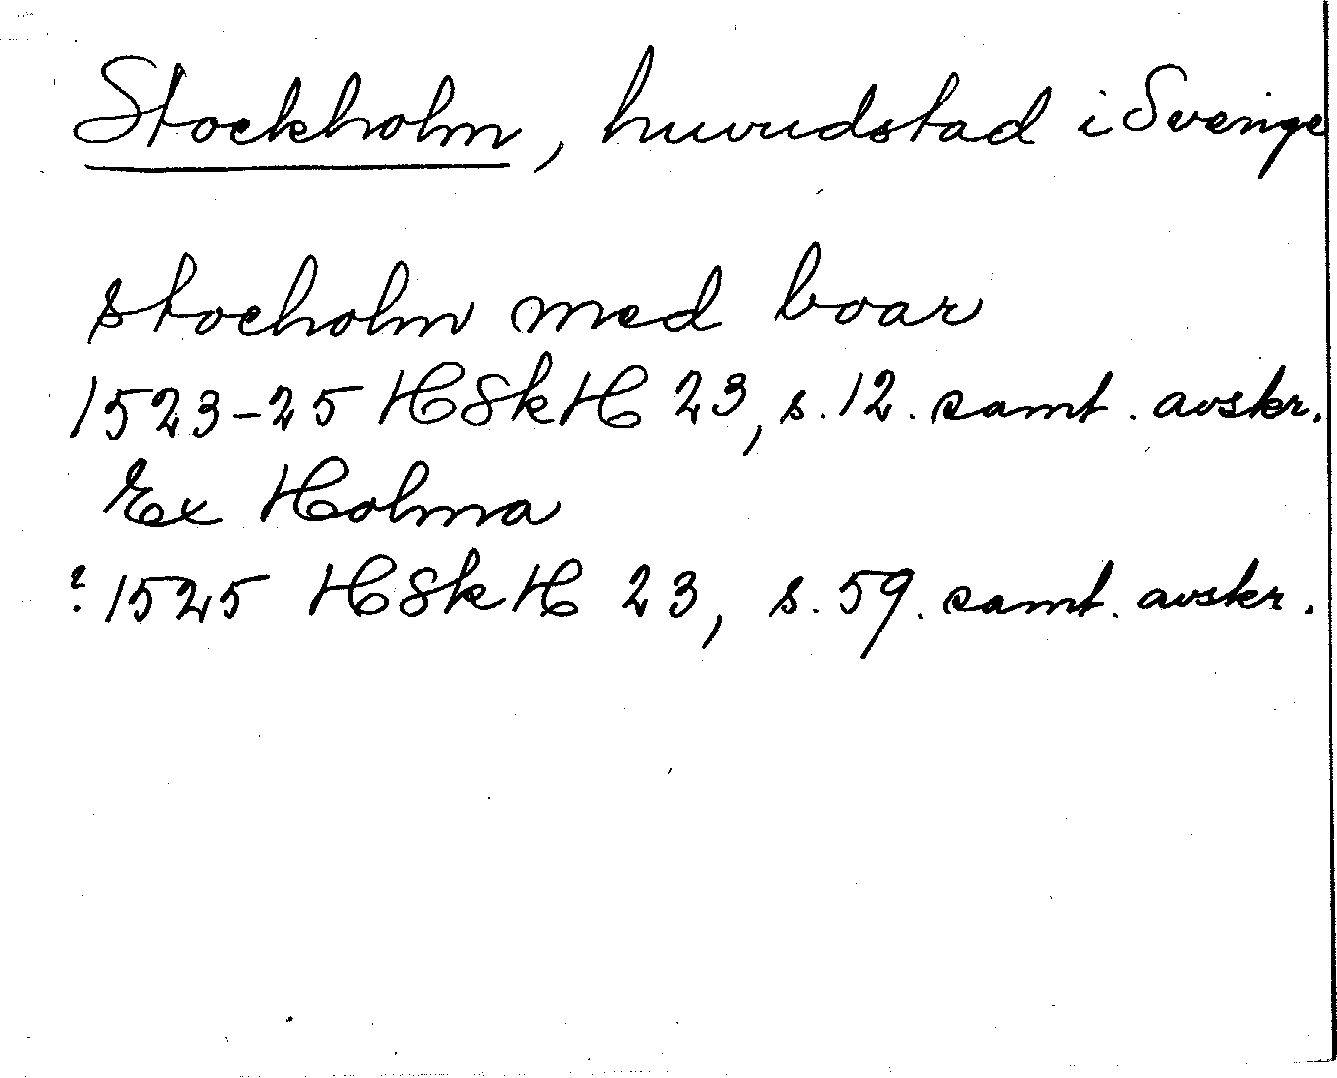 Stockholm, huvudstad i Sverige
stocholm med boar
1523-25 HSkH 23, s. 12. samt. avskr.
Ex Holma
? 1525 HSkH 23, s. 59. samt. avskr.